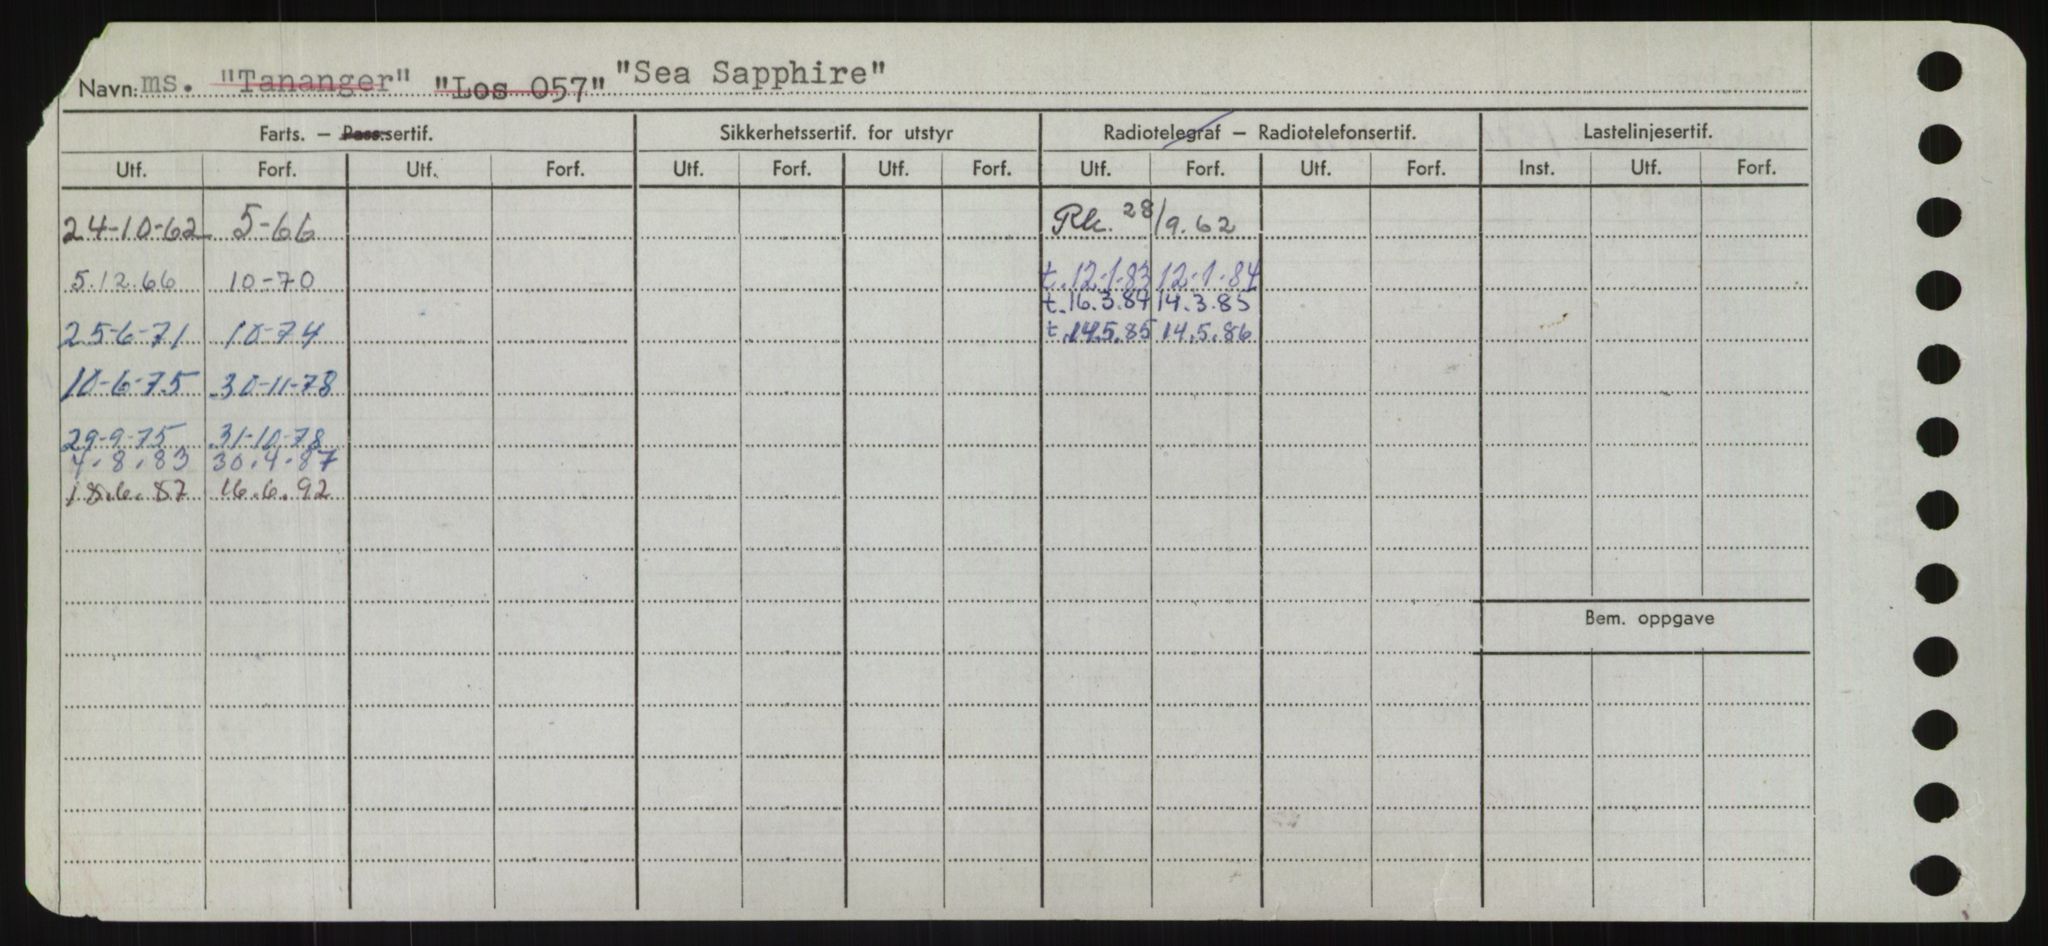 Navn: ms. "Tananger" "Los 057" "Sea Sapphire"
Farts. — Pass.sertif. Sikkerhetssertif. for utstyr Radiotelegraf — Radiotelefonsertif. Lastelinjesertif.
Utf. Forf. Utf. Forf. Utf. Forf. Utf. Forf. Utf. Forf. Utf. Forf. Inst. Utf. Forf.
24-10-62 5-66 Rk. 28/9.62
5.12.66 10-70 t.12-1-83 12-1-84
t.16.3.84 14.3.85
25-6-71 10-74 t.14.5.85 14.5.86
10-6-75 30-11-78
29-9-75 31-10-78
4.8.83 30.4.87
18.6.87 16.6.92
Bem. oppgave